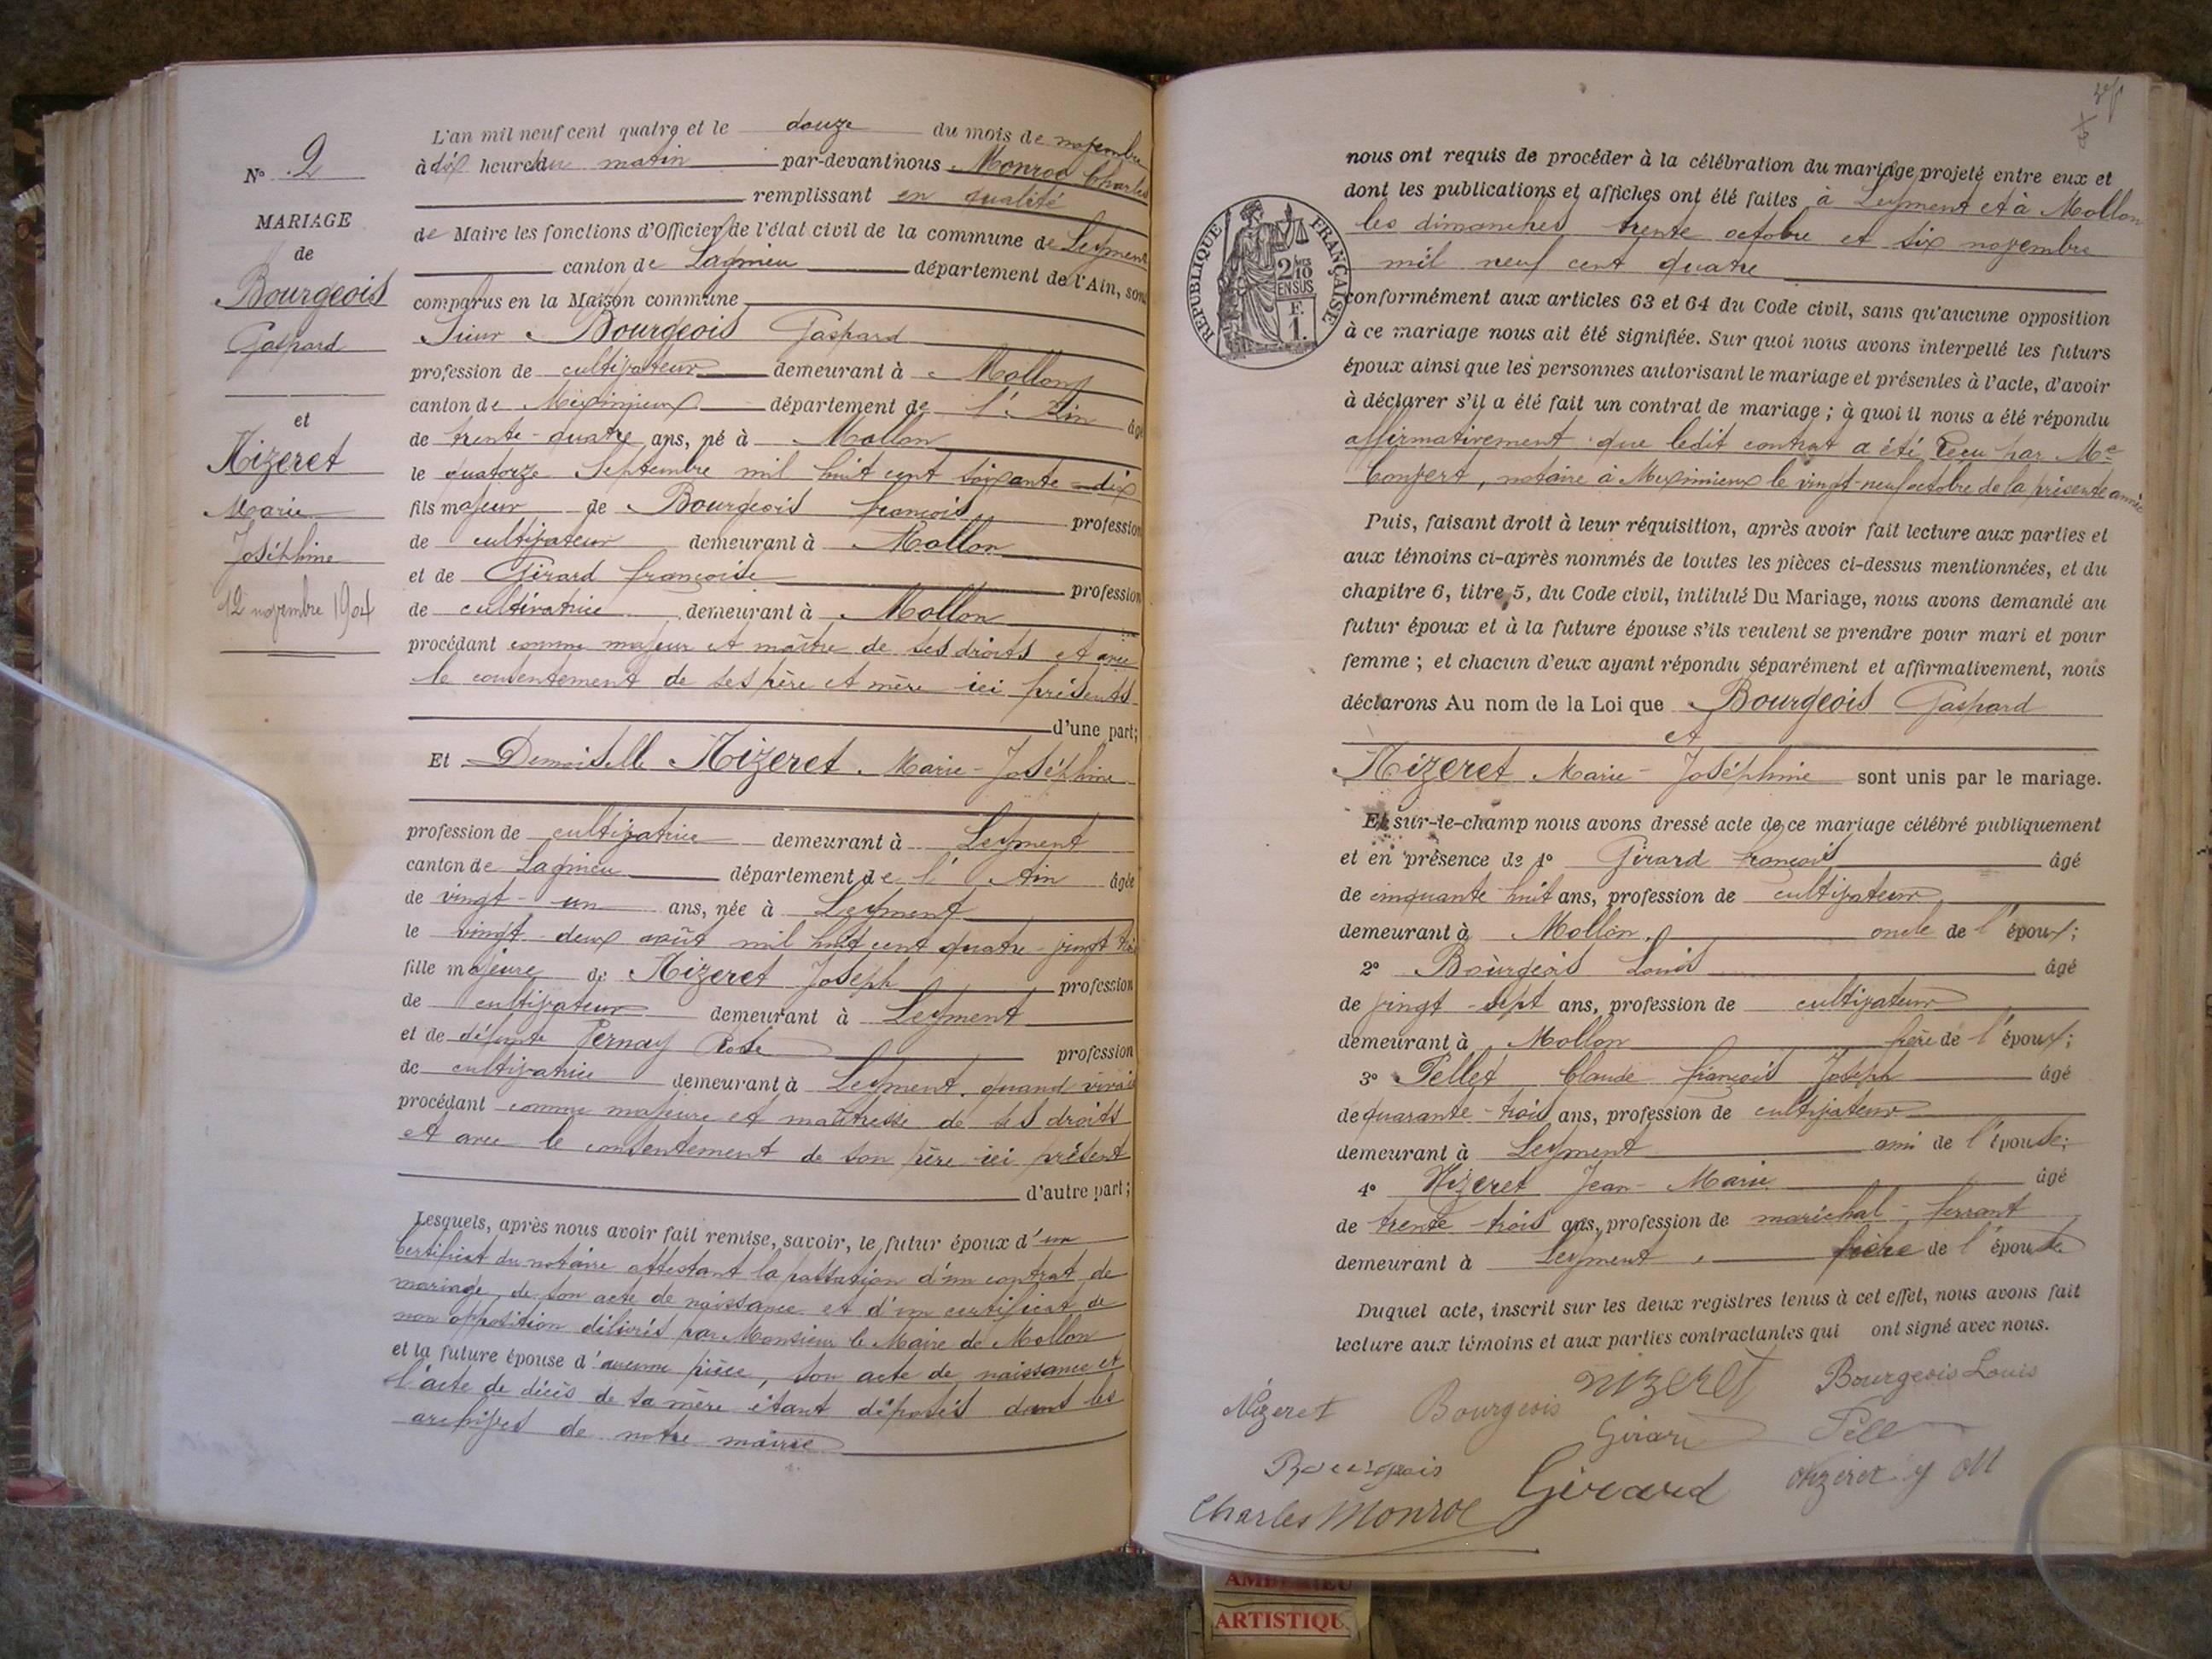 N° 2
MARIAGE
de
Bourgeois
Gaspard
et
Nizeret
Marie
Joséphine
12 novembre 1904
L'an mil neuf cent quatre et le douze du mois de novembre
à dix heures du matin par-devant nous Monroe Charles
remplissant en qualité
de Maire les fonctions d'Officier de l'état civil de la commune de Leyment
canton de Lagnieu département de l'Ain, sont
comparus en la Maison commune
Sieur Bourgeois Gaspard
profession de cultivateur demeurant à Mollon
canton de Meximieux département de l'Ain âgé
de trente-quatre ans, né à Mollon
le quatorze Septembre mil huit cent soixante-dix
fils majeur de Bourgeois françois profession
de cultivateur demeurant à Mollon
et de Girard françoise profession
de cultivatrice demeurant à Mollon
procédant comme majeur et maître de ses droits et avec
le consentement de ses père et mère ici présents
d'une part;
Et Demoiselle Nizeret Marie-Joséphine
profession de cultivatrice demeurant à Leyment
canton de Lagnieu département de l'Ain âgée
de vingt-un ans, née à Leyment
le vingt-deux août mil huit cent quatre-vingt trois
fille majeure de Nizeret Joseph profession
de cultivateur demeurant à Leyment
et de défunte Pernay Rose profession
de cultivatrice demeurant à Leyment quand vivait
procédant comme majeure et maîtresse de ses droits
et avec le consentement de son père ici présent
d'autre part;
Lesquels, après nous avoir fait remise, savoir, le futur époux d'un
certificat du notaire attestant la passation d'un contrat de
mariage, de son acte de naissance et d'un certificat de
non opposition délivrés par Monsieur le Maire de Mollon
et la future épouse d'aucune pièce, son acte de naissance et
l'acte de décès de sa mère étant déposés dans les
archives de notre mairie
nous ont requis de procéder à la célébration du mariage projeté entre eux et
dont les publications et affiches ont été faites à Leyment et à Mollon
les dimanches trente octobre et six novembre
mil neuf cent quatre
RÉPUBLIQUE FRANÇAISE
2 10
EN SUS
F.
1.
conformément aux articles 63 et 64 du Code civil, sans qu'aucune opposition
à ce mariage nous ait été signifiée. Sur quoi nous avons interpellé les futurs
époux ainsi que les personnes autorisant le mariage et présentes à l'acte, d'avoir
à déclarer s'il a été fait un contrat de mariage ; à quoi il nous a été répondu
affirmativement que ledit contrat a été reçu par Me
Convert, notaire à Meximieux le vingt-neuf octobre de la présente année
Puis, faisant droit à leur réquisition, après avoir fait lecture aux parties et
aux témoins ci-après nommés de toutes les pièces ci-dessus mentionnées, et du
chapitre 6, titre 5, du Code civil, intitulé Du Mariage, nous avons demandé au
futur époux et à la future épouse s'ils veulent se prendre pour mari et pour
femme ; et chacun d'eux ayant répondu séparément et affirmativement, nous
déclarons Au nom de la Loi que Bourgeois Gaspard
et
Nizeret Marie-Joséphine sont unis par le mariage.
Et sur-le-champ nous avons dressé acte de ce mariage célébré publiquement
et en présence de 1° Girard françois âgé
de cinquante huit ans, profession de cultivateur
demeurant à Mollon, oncle de l'époux;
2° Bourgeois Louis âgé
de vingt-sept ans, profession de cultivateur
demeurant à Mollon frère de l'époux;
3° Pellet Claude françois Joseph âgé
de quarante-trois ans, profession de cultivateur
demeurant à Leyment ami de l'épouse;
4° Nizeret Jean-Marie âgé
de trente-trois ans, profession de maréchal-ferrant
demeurant à Leyment, frère de l'épouse
Duquel acte, inscrit sur les deux registres tenus à cet effet, nous avons fait
lecture aux témoins et aux parties contractantes qui ont signé avec nous.
Nizeret Bourgeois Nizeret Bourgeois Louis
Girard Pell
Bourgeois Girard Nizeret J M
Charles Monroe
AMBERIEU
ARTISTIQU